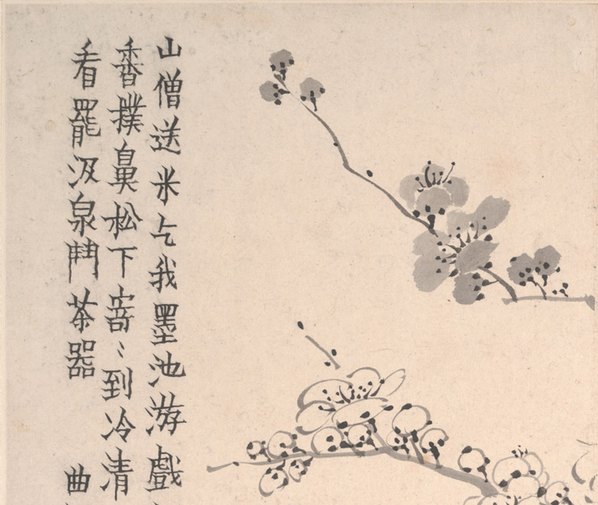 山僧送米乞我墨池游戲
香撲鼻松下寄〻到冷清
看罷汲泉鬥茶器 曲